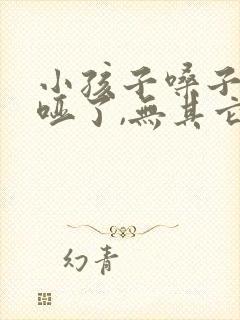 小孩子嗓子
哑了,無其它
幻青